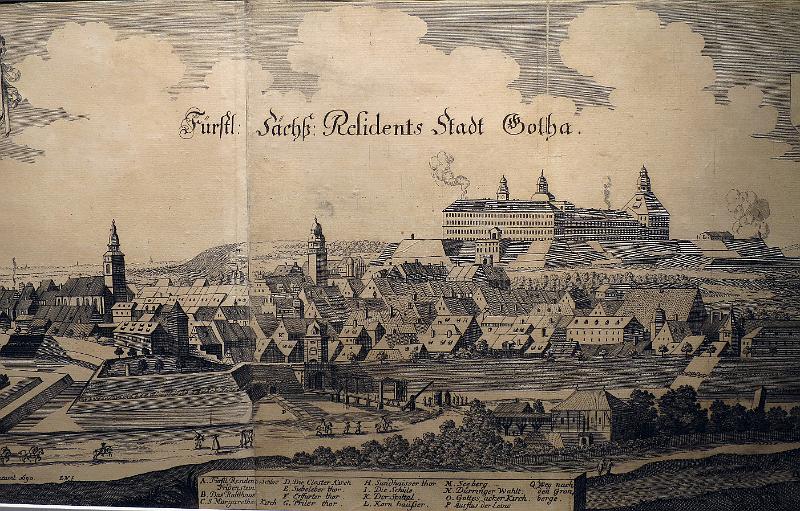 Fürstl: Sächß: Residents Stadt Gotha.
A. Fürstl. Residenz Schloß
Fridenstein
B. Das Rathhaus
C. S. Margarethe Kirch
D. Die Closter Kirch
E. Siebeleber thor
F. Erfurter thor
G. Priler thor
H. Sundhausser thor
I. Die Schüle
K. Der Spittel
L. Korn haüser.
M. Seeberg
N. Dürringer Waldt.
O. Gottes acker Kirch
P. Ausflus der Leina
Q. Weg nach
den Gron
berge